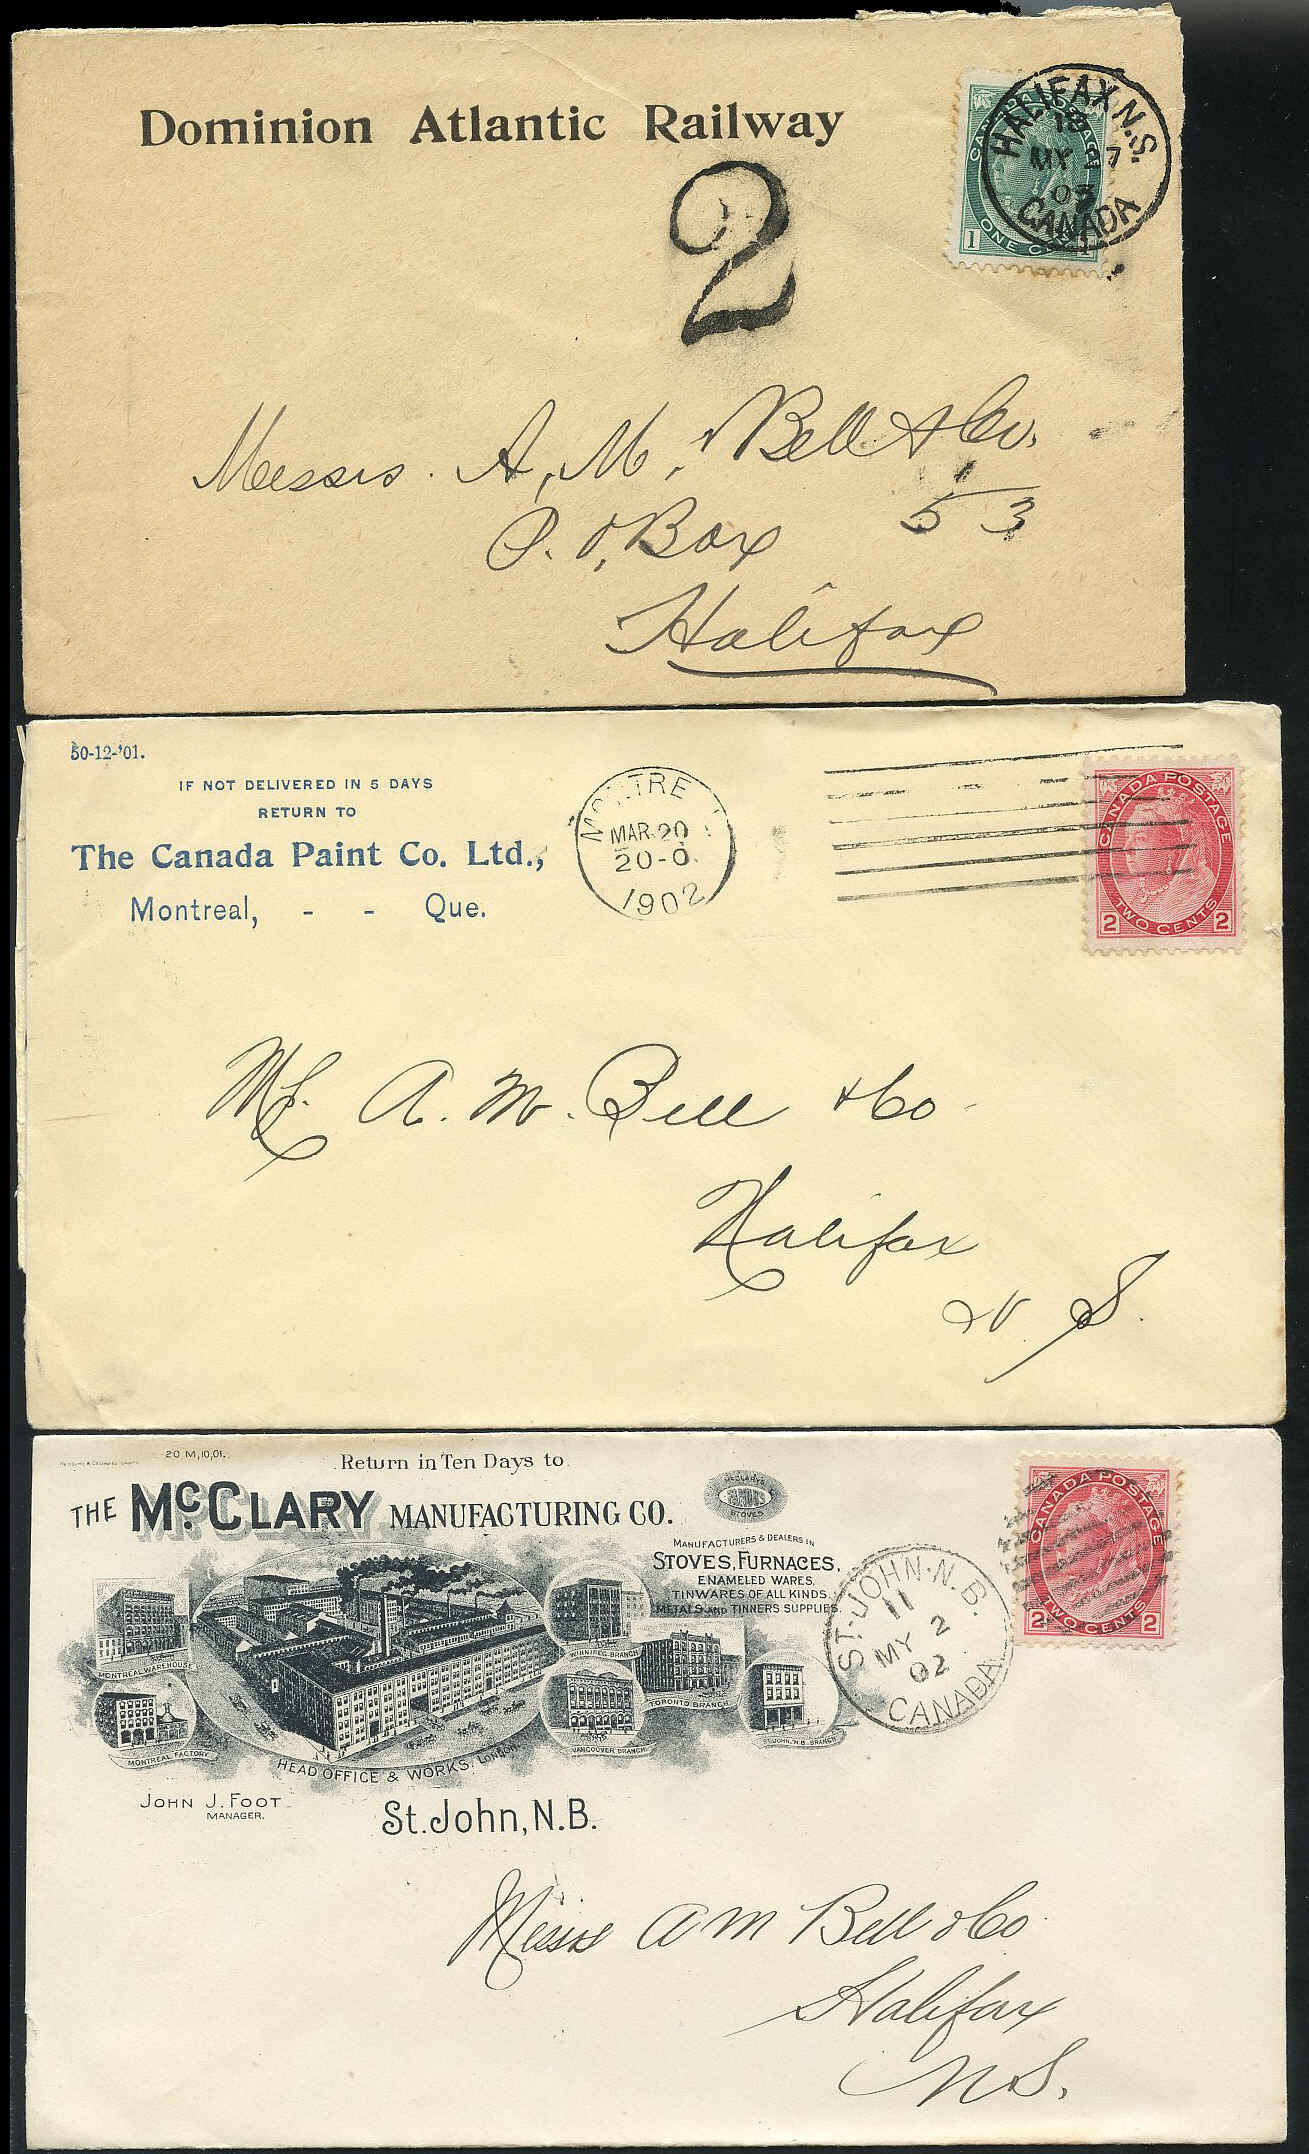 Dominion Atlantic Railway
CANADA POSTAGE
1 ONE CENT 1
HALIFAX N.S.
18
MY 27
03
CANADA
2
Messrs. A. M. Bell & Co.
P. O. Box 53
Halifax
50-12-'01.
IF NOT DELIVERED IN 5 DAYS
RETURN TO
The Canada Paint Co. Ltd.,
Montreal, - - Que.
MAR 20
20-0
1902
CANADA POSTAGE
2 TWO CENTS 2
A. M. Bell & Co
Halifax
N. S.
20 M,10,01.
Return in Ten Days to
THE McCLARY MANUFACTURING CO.
McCLARY'S
FAMOUS
STOVES
MANUFACTURERS & DEALERS IN
STOVES, FURNACES,
ENAMELED WARES,
TINWARES OF ALL KINDS,
METALS AND TINNERS SUPPLIES.
MONTREAL WAREHOUSE
MONTREAL FACTORY
WINNIPEG BRANCH
TORONTO BRANCH
VANCOUVER BRANCH
ST. JOHN, N.B. BRANCH
HEAD OFFICE & WORKS, LONDON
JOHN J. FOOT
MANAGER.
St. John, N.B.
ST. JOHN. N. B.
11
MY 2
02
CANADA
CANADA POSTAGE
2 TWO CENTS 2
Messrs A M Bell & Co
Halifax
N S.